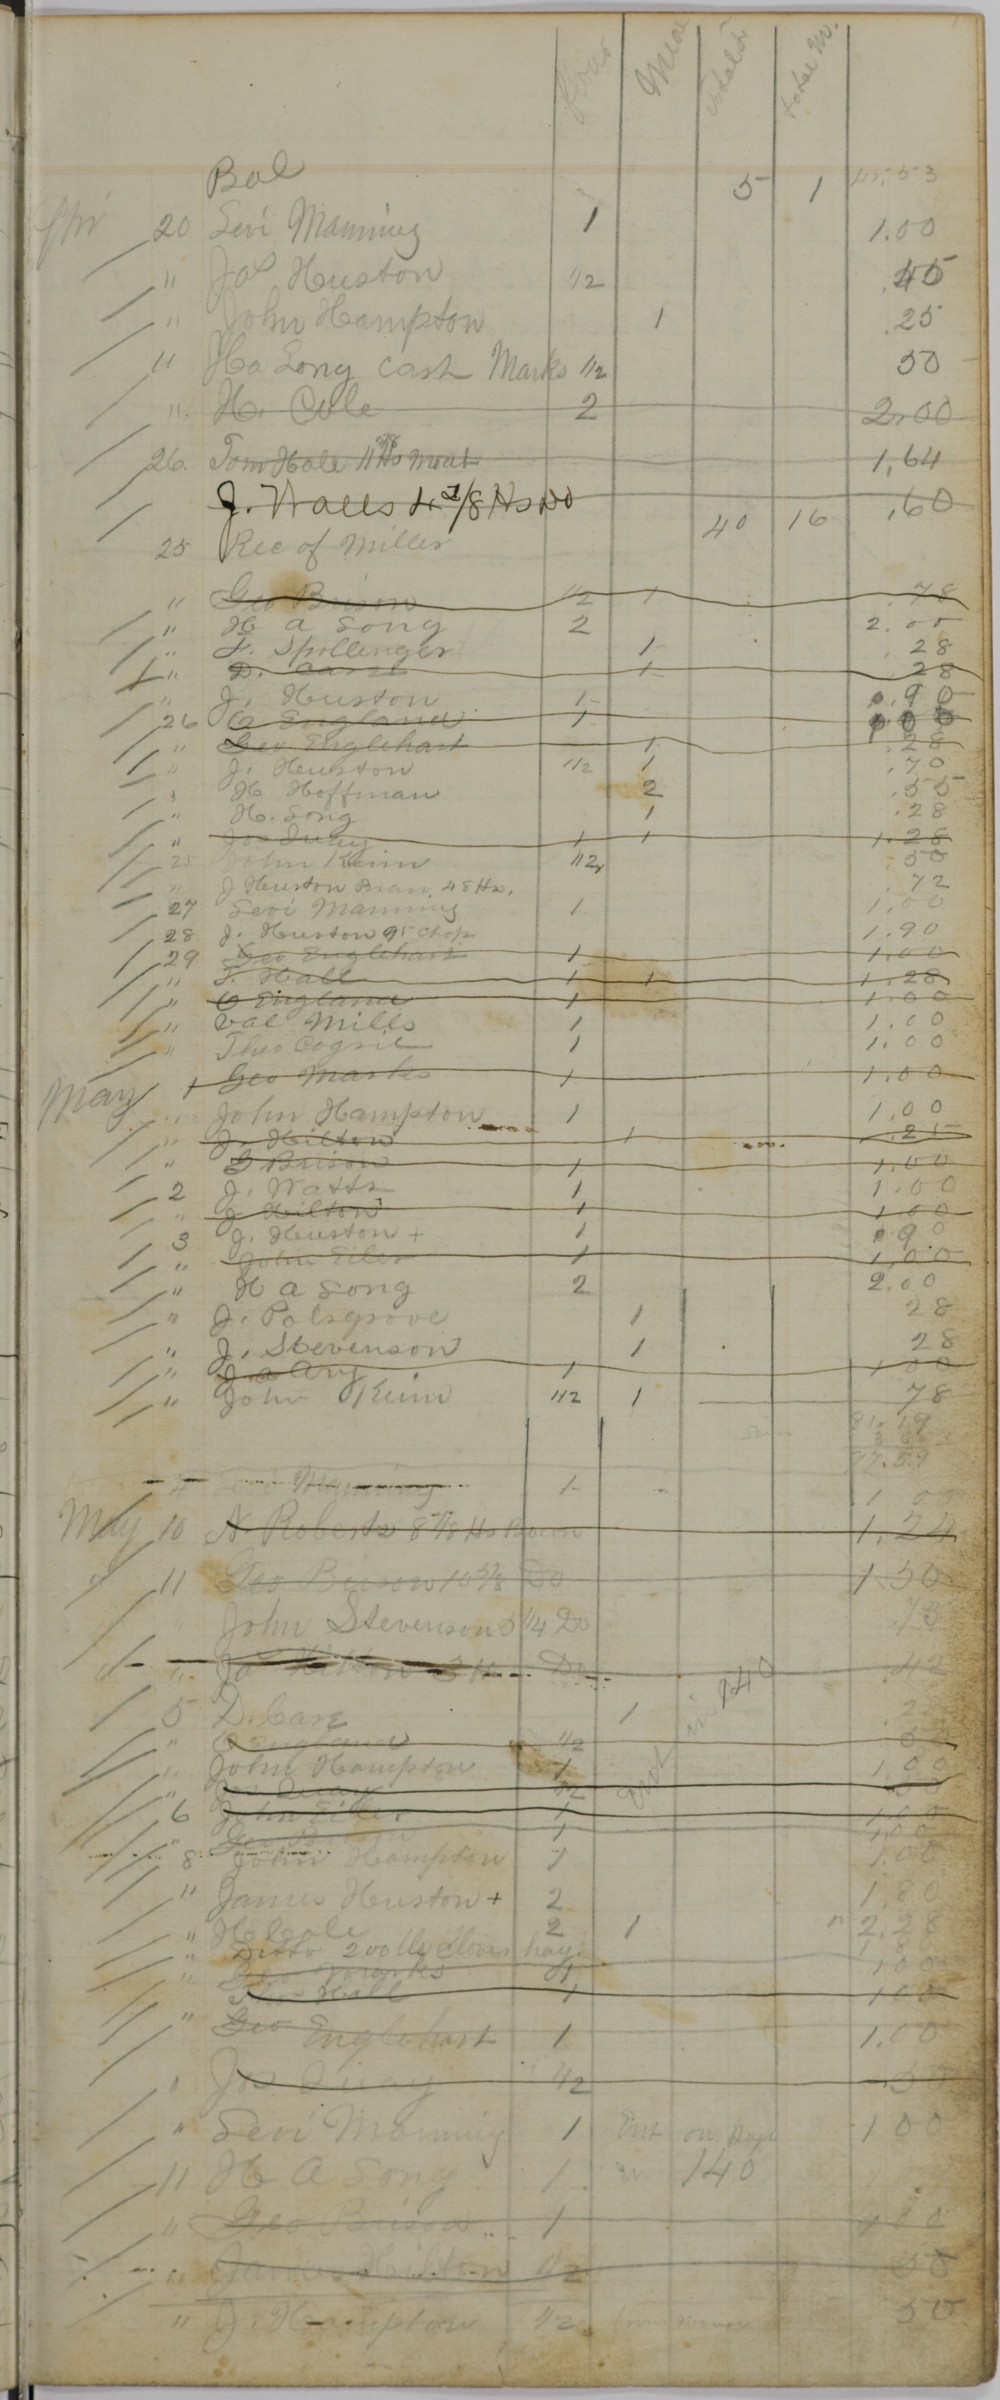 Flour Meal total total M.
Bal 5 1 45.53
Apr 20 Levi Manning 1 1.00
" Jas Huston 1/2 .45
" John Hampton 1 .25
" Ha Long Cash Marks 1/2 50
" H. Cole 2 2.00
26. Tom Hale 11 Hs Meat 1,64
J. Walls 4 /8 Hs Do .60
25 Rec of Miller 40 16
" Geo Brison 1/2 1 .78
" H a Long 2 2.00
" F. Spollinger 1 28
" D. Carz 1 28
" J. Huston 1 .90
26 O England 1
" Geo Englehart 1 .28
" J. Heuston 1/2 1 .70
" H Hoffman 2 .55
" H. Long 1 .28
" Jos Quay 1 1 1.28
25 John Keim 1/2 .50
" J Heuston Bran 48 Hs. .72
27 Levi Manning 1 1.00
28 J. Huston 95 chop 1.90
29 Geo Englehart 1 1.00
" T. Hall 1 1 1.28
" O England 1 1.00
" Val Mills 1 1.00
" Theo Cogsil 1 1.00
May 1 Geo Marks 1 1.00
" John Hampton 1 1.00
" J. Hilton 1 .25
" G Brison 1 1.00
2 J. Watts 1 1.00
" J Hilton 1 1.00
3 J. Heuston + 1 .90
" John Eiler 1 1.00
" H a Long 2 2.00
" J. Polsgrove 1 28
" J. Stevenson 1 28
" J a Ary 1 1.00
" John Keim 1/2 1 78
81.19
97.59
4 Levi Manning 1 1 00
May 10 N Roberts 8 7/8 Hs Bacon 1.24
" 11 Geo Brison 10 5/8 Do 1.50
John Stevenson 5 1/4 Do .73
" Jas Hilton 3 H Do .42
5 D. Carz 1
" O England 1/2
" John Hampton 1 1.00
" Jos Quay 1/2 50
6 John Eiler 1 1.00
" Geo Brison 1 1.00
8 John Hampton 1 1.00
" James Heuston + 2 1.80
" H Cole 2 1 2.28
" Ditto 200 lbs Clover hay
" Geo Marks 1 1.00
Hall 1 1.00
" Geo Englehart 1 1.00
" Jos Quay 1/2 .50
" Levi Manning 1 Ent on page 1 00
11 H A Long 1 140
" Geo Brison 1 1 00
" James Hilton 1/2 50
" J. Hampton 1/2 50
Ent in 140